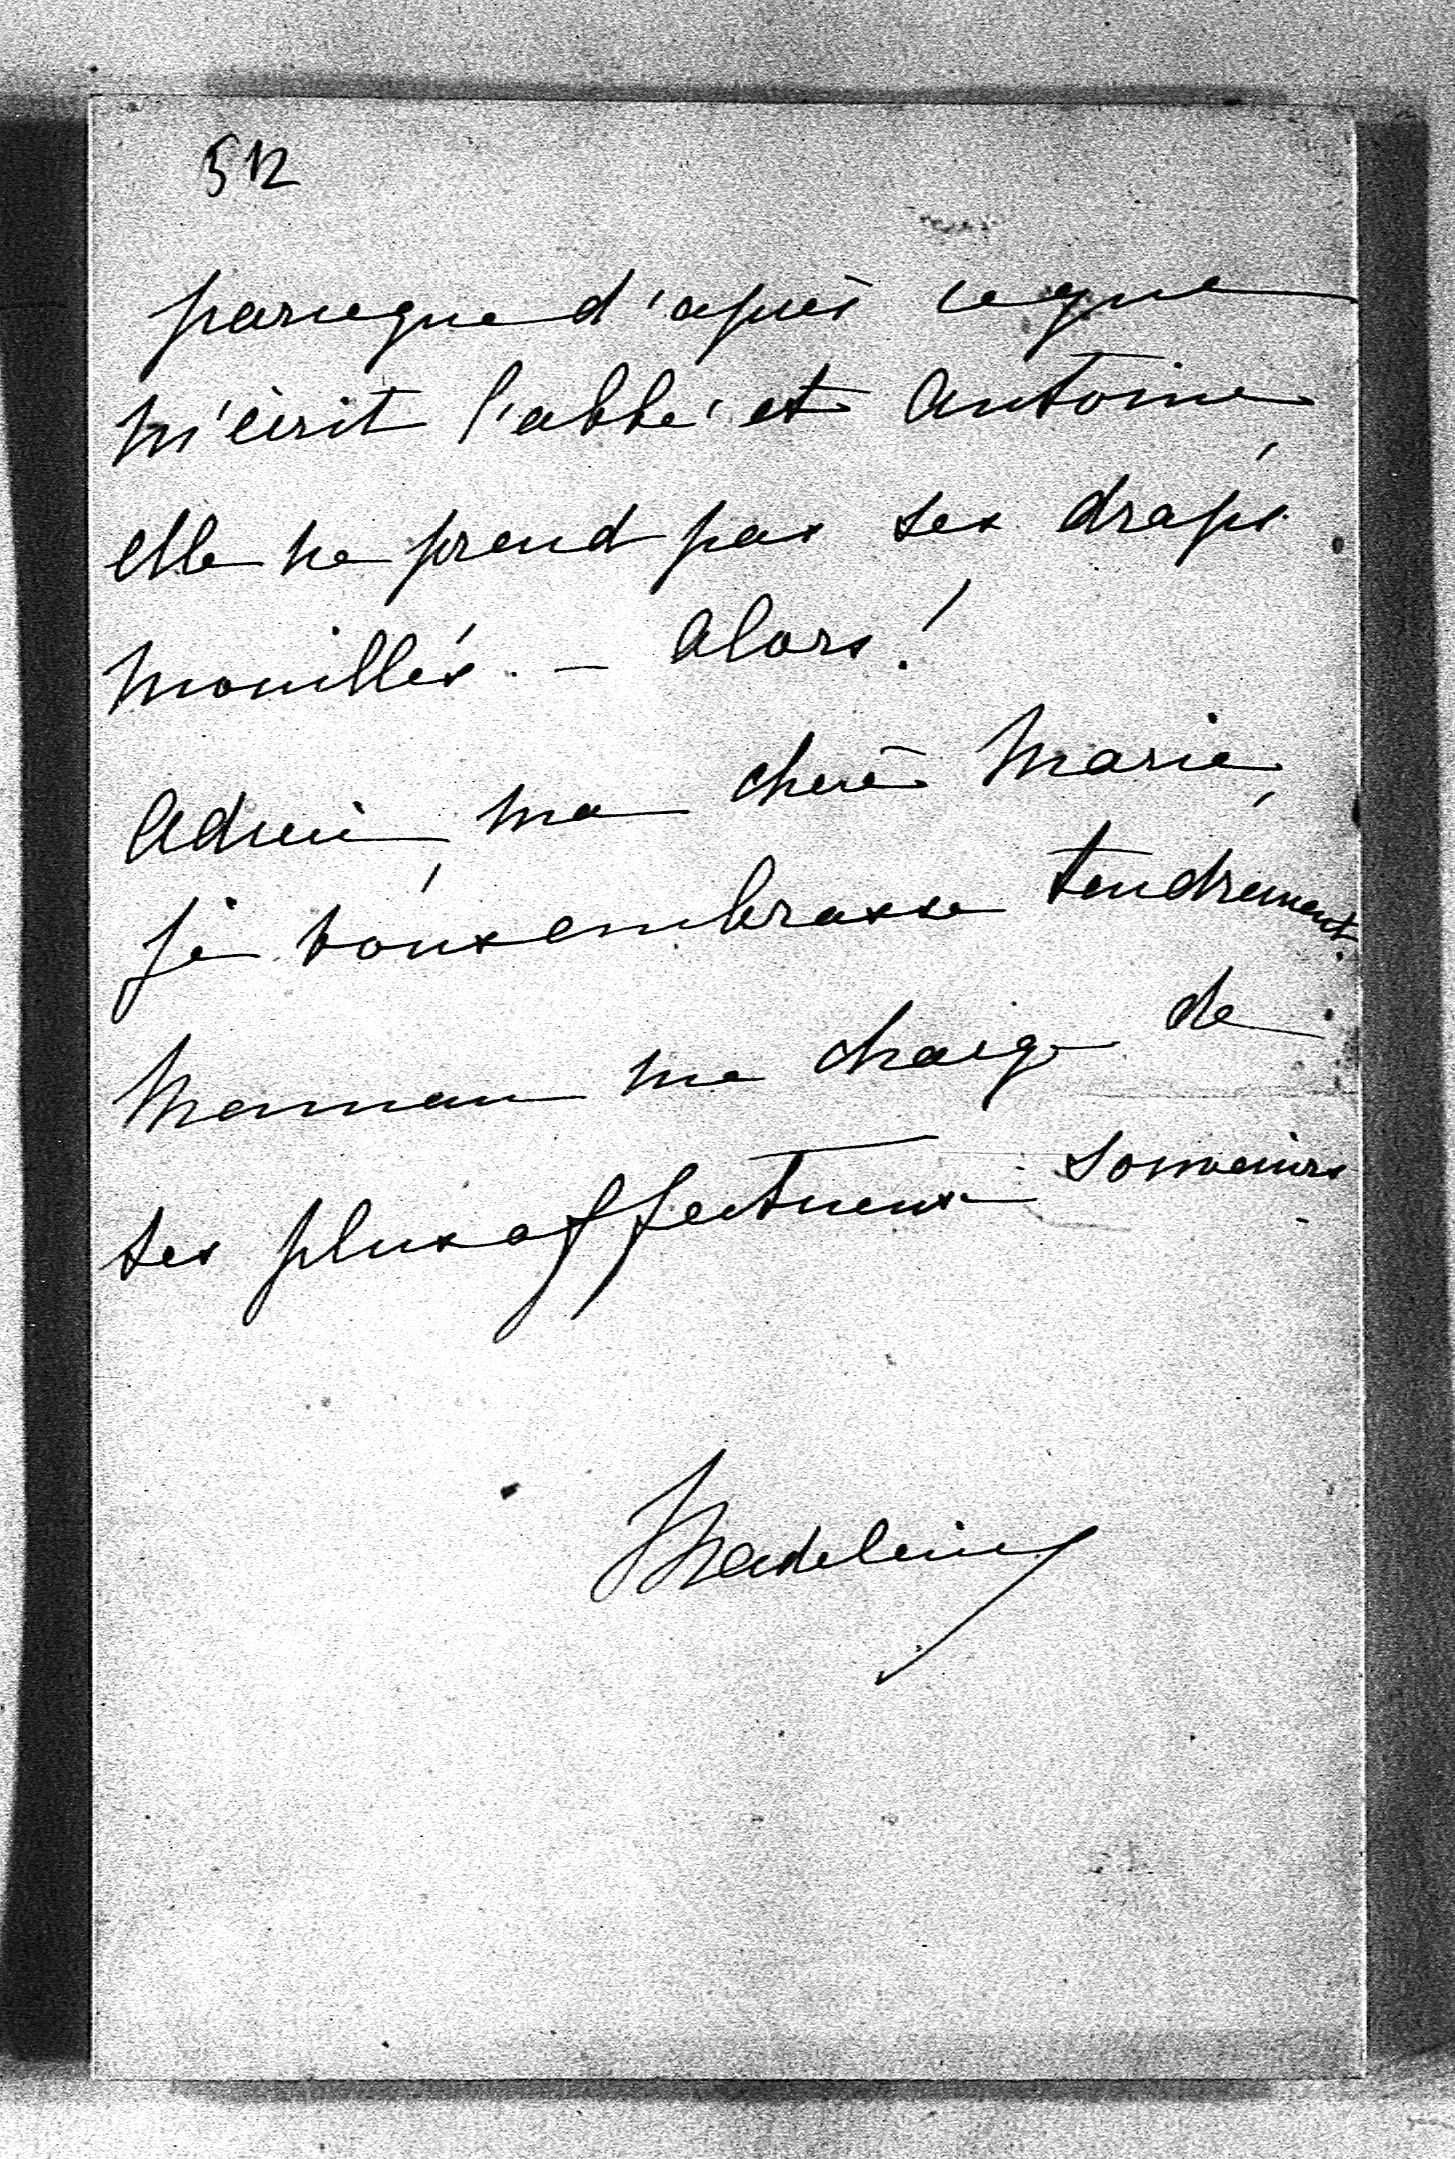 512
parceque d'après ce que
m'écrit l'abbé et Antoine,
elle ne prend pas ses draps
mouillés. – Alors!
Adieu, ma chère Marie,
je vous embrasse tendrement.
Maman me charge de
ses plus affectueux souvenirs
Madeleine